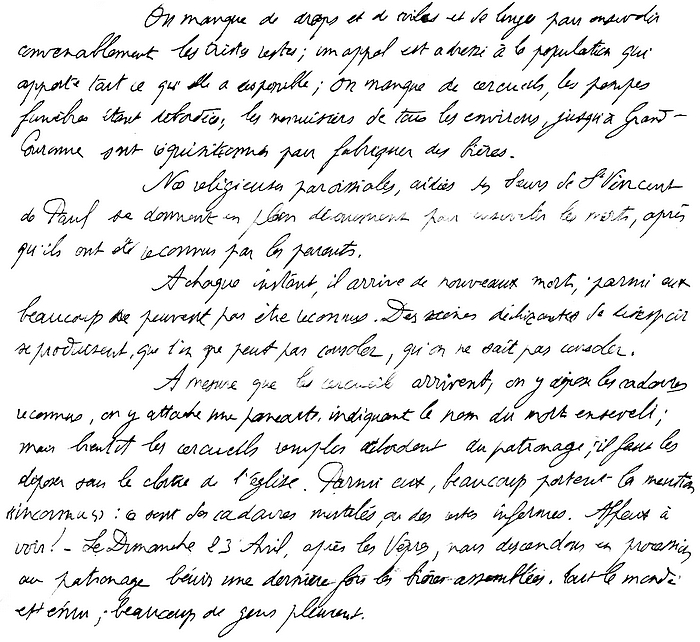 On manque de draps et de voiles et de linges pour ensevelir
convenablement les tristes restes ; un appel est adressé à la population qui
apporte tout ce qu'elle a disponible ; on manque de cercueils, les pompes
funèbres étant débordées, les menuisiers de tous les environs, jusqu'à Grand-
Couronne sont réquisitionnés pour fabriquer des bières.
Nos religieuses paroissiales, aidées des Sœurs de St Vincent
de Paul se donnent en plein dévouement pour ensevelir les morts, après
qu'ils ont été reconnus par les parents.
A chaque instant, il arrive de nouveaux morts, parmi eux
beaucoup ne peuvent pas être reconnus. Des scènes déchirantes de désespoir
se produisent, que l'on ne peut pas consoler, qu'on ne sait pas consoler.
A mesure que les cercueils arrivent, on y dépose les cadavres
reconnus, on y attache une pancarte indiquant le nom du mort enseveli ;
mais bientôt les cercueils remplis débordent du patronage, il faut les
déposer sous le cloître de l'église. Parmi eux, beaucoup portent la mention
«inconnus» : ce sont des cadavres mutilés, ou des restes informes. Affreux à
voir ! - Le Dimanche 23 Avril, après les Vêpres, nous descendons en procession
au patronage bénir une dernière fois les bières assemblées. tout le monde
est ému ; beaucoup de gens pleurent.